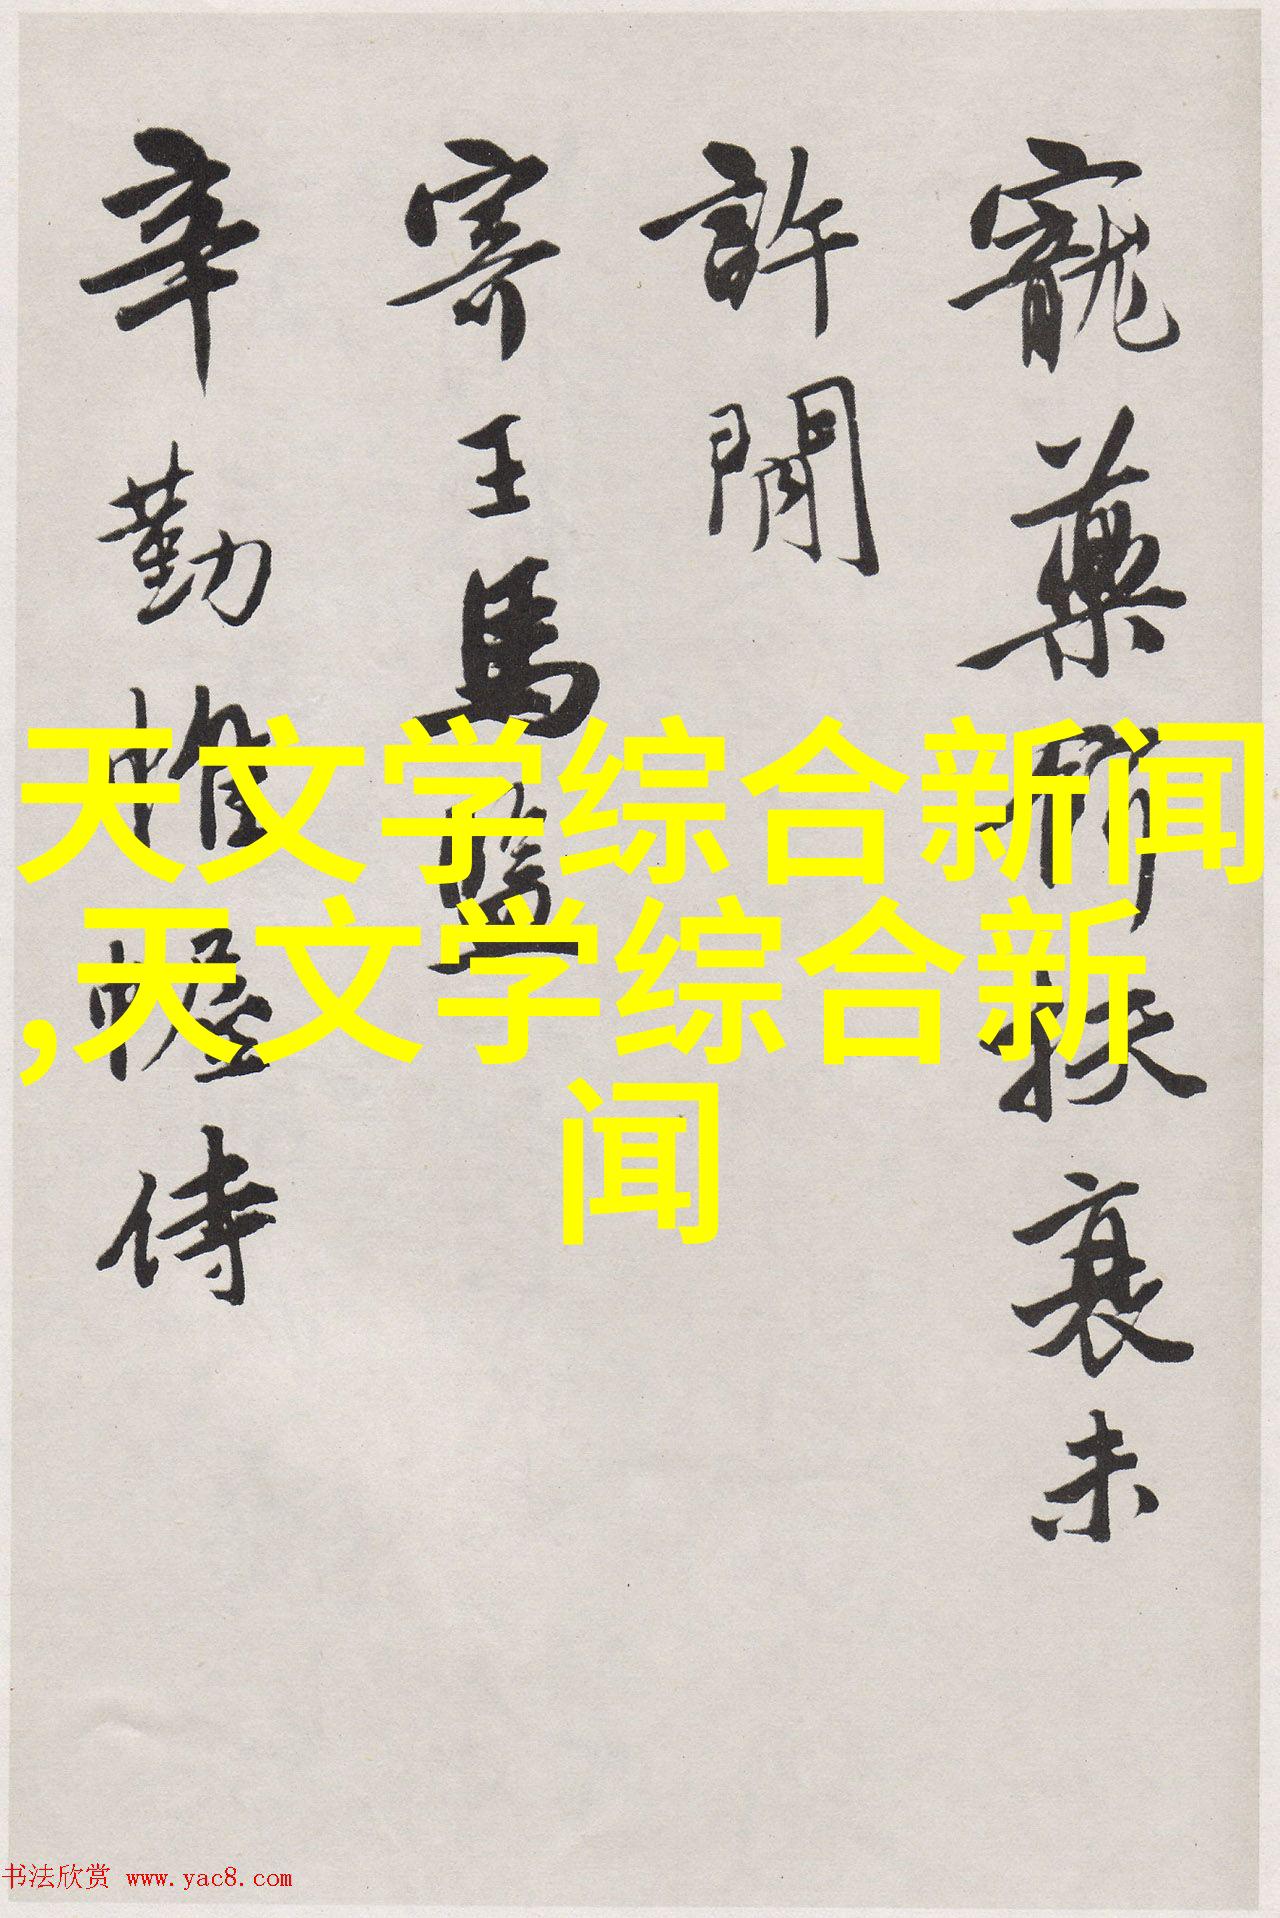 寵藥扶衰未
許閒
寄王馬
辛勤帷幄侍
天文学综合新闻
,天文学综合新
闻
书法欣赏 www.yac8.com